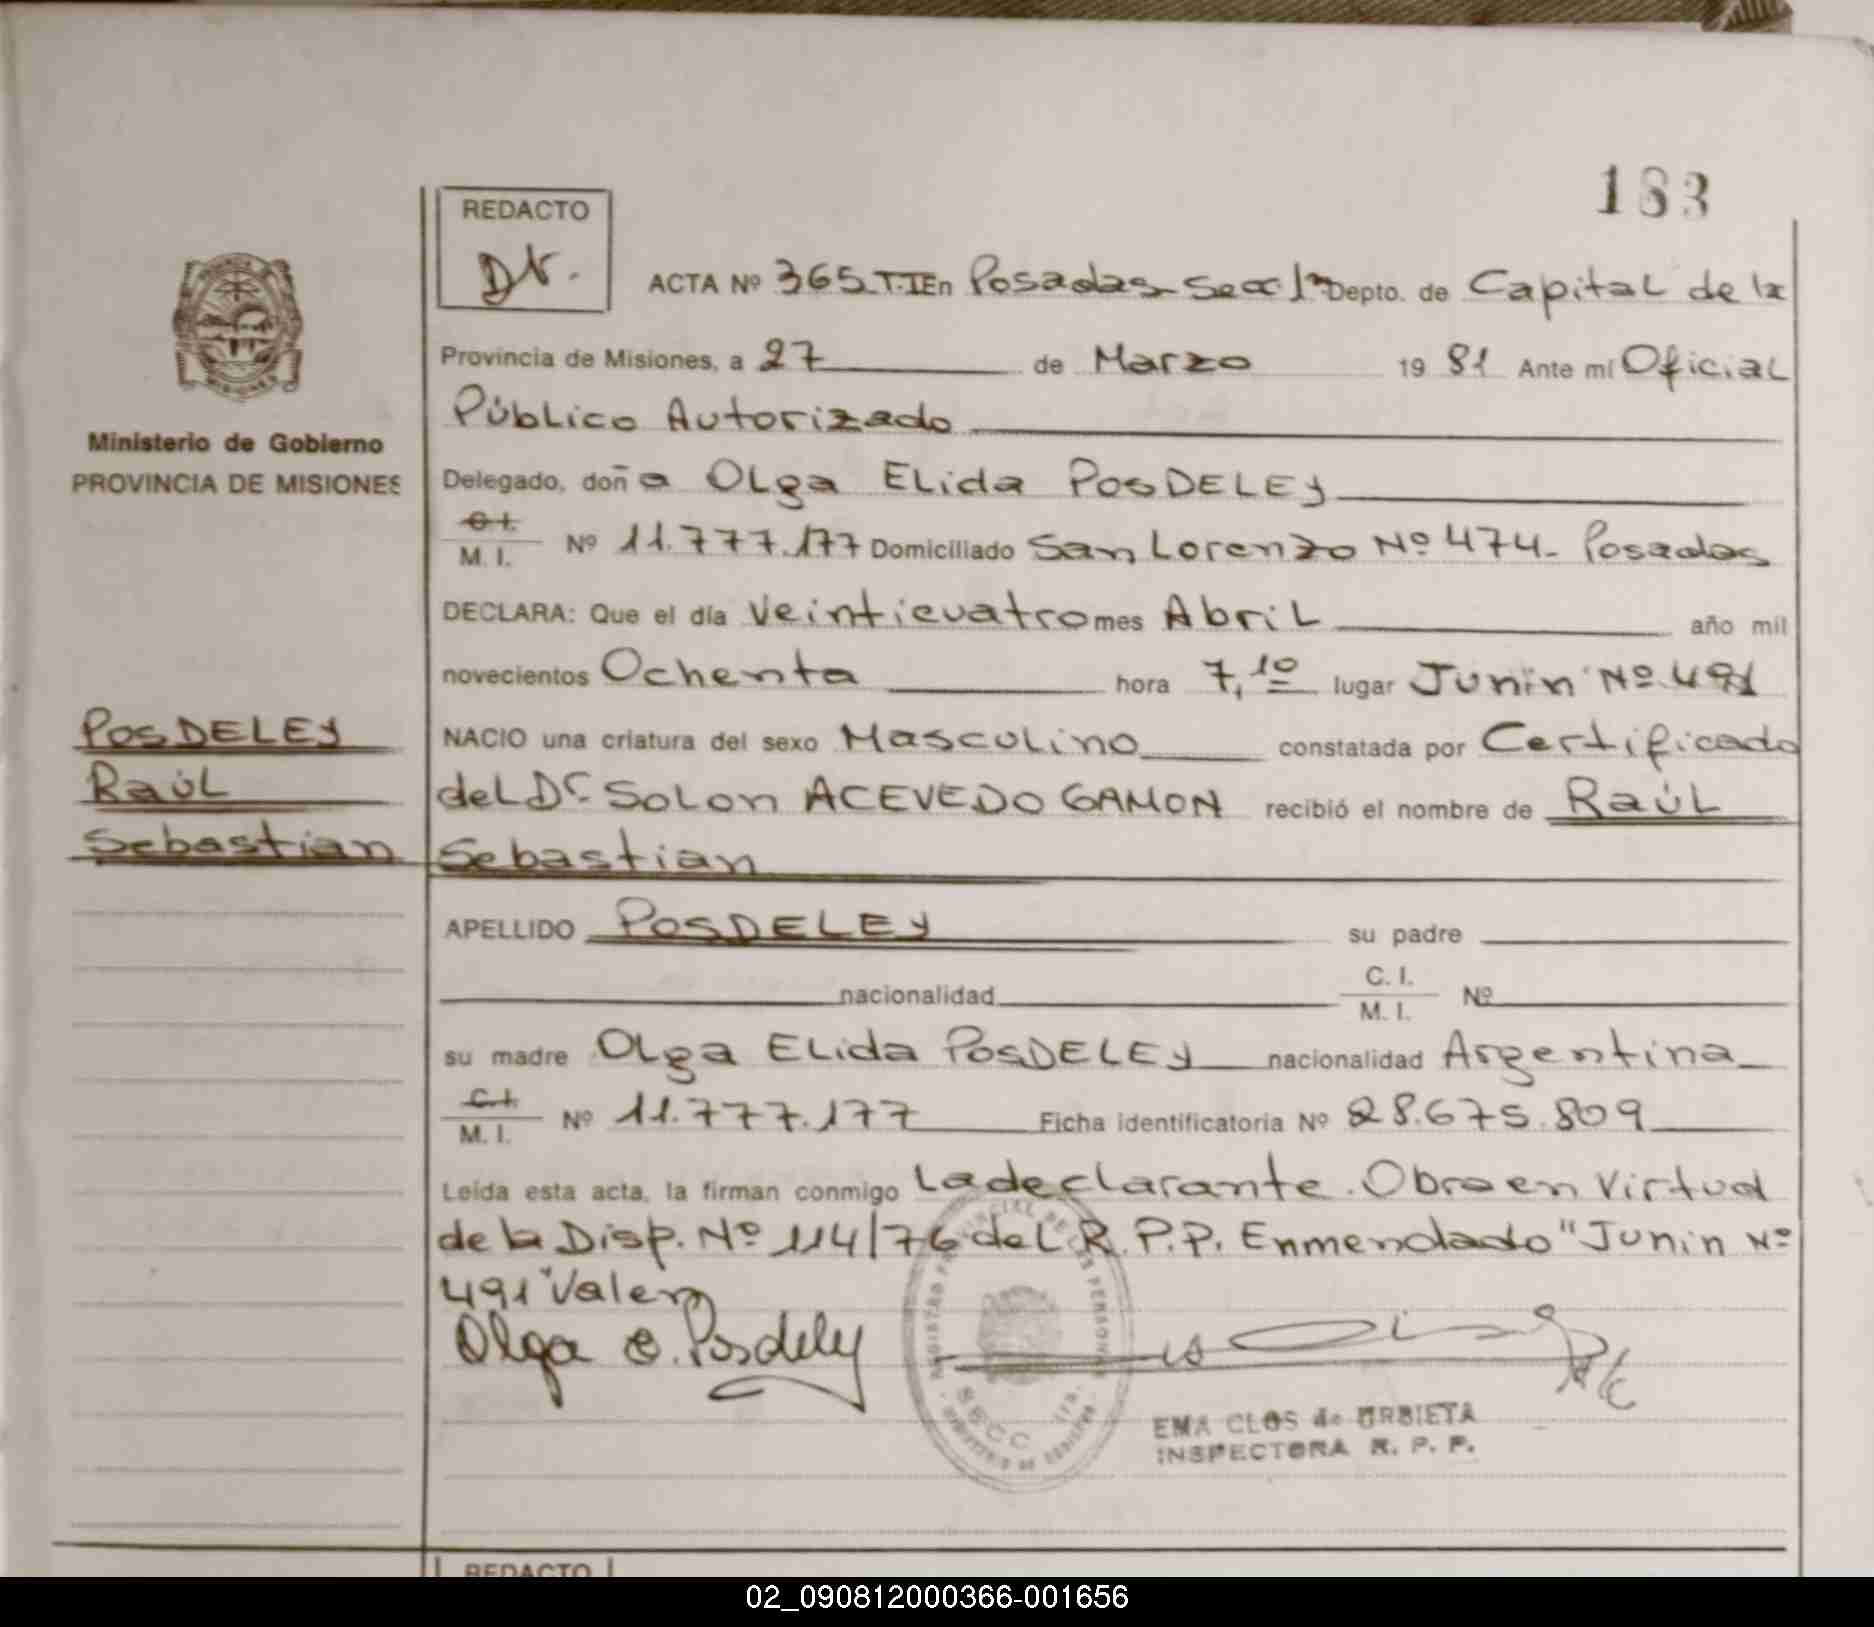 183
REDACTO
Dr.
ACTA Nº 365 T.I En Posadas Secc 1ª Depto. de Capital de la
Provincia de Misiones, a 27 de Marzo 1981 Ante mí Oficial
Público Autorizado
Ministerio de Gobierno
PROVINCIA DE MISIONES
Delegado, doña Olga Elida POSDELEY
C.I.
M. I. Nº 11.777.177 Domiciliado San Lorenzo Nº 474- Posadas
DECLARA: Que el día Veinticuatro mes Abril año mil
novecientos Ochenta hora 7,10 lugar Junin Nº 491
POSDELEY
Raúl
Sebastian
NACIO una criatura del sexo Masculino constatada por Certificado
del Dr. Solon ACEVEDO GAMON recibió el nombre de Raúl
Sebastian
APELLIDO POSDELEY su padre
nacionalidad C. I.
M. I. Nº
su madre Olga Elida POSDELEY nacionalidad Argentina
C.I.
M. I. Nº 11.777.177 Ficha identificatoria Nº 28.675.809
Leída esta acta, la firman conmigo La declarante. Obra en Virtud
de la Disp. Nº 114/76 del R.P.P. Enmendado "Junin Nº
491" Valen
Olga E. Posdeley
REGISTRO PROVINCIAL DE LAS PERSONAS
SECC. 1ra.
EMA CLOS de URBIETA
INSPECTORA R. P. P.
REDACTO
02_090812000366-001656